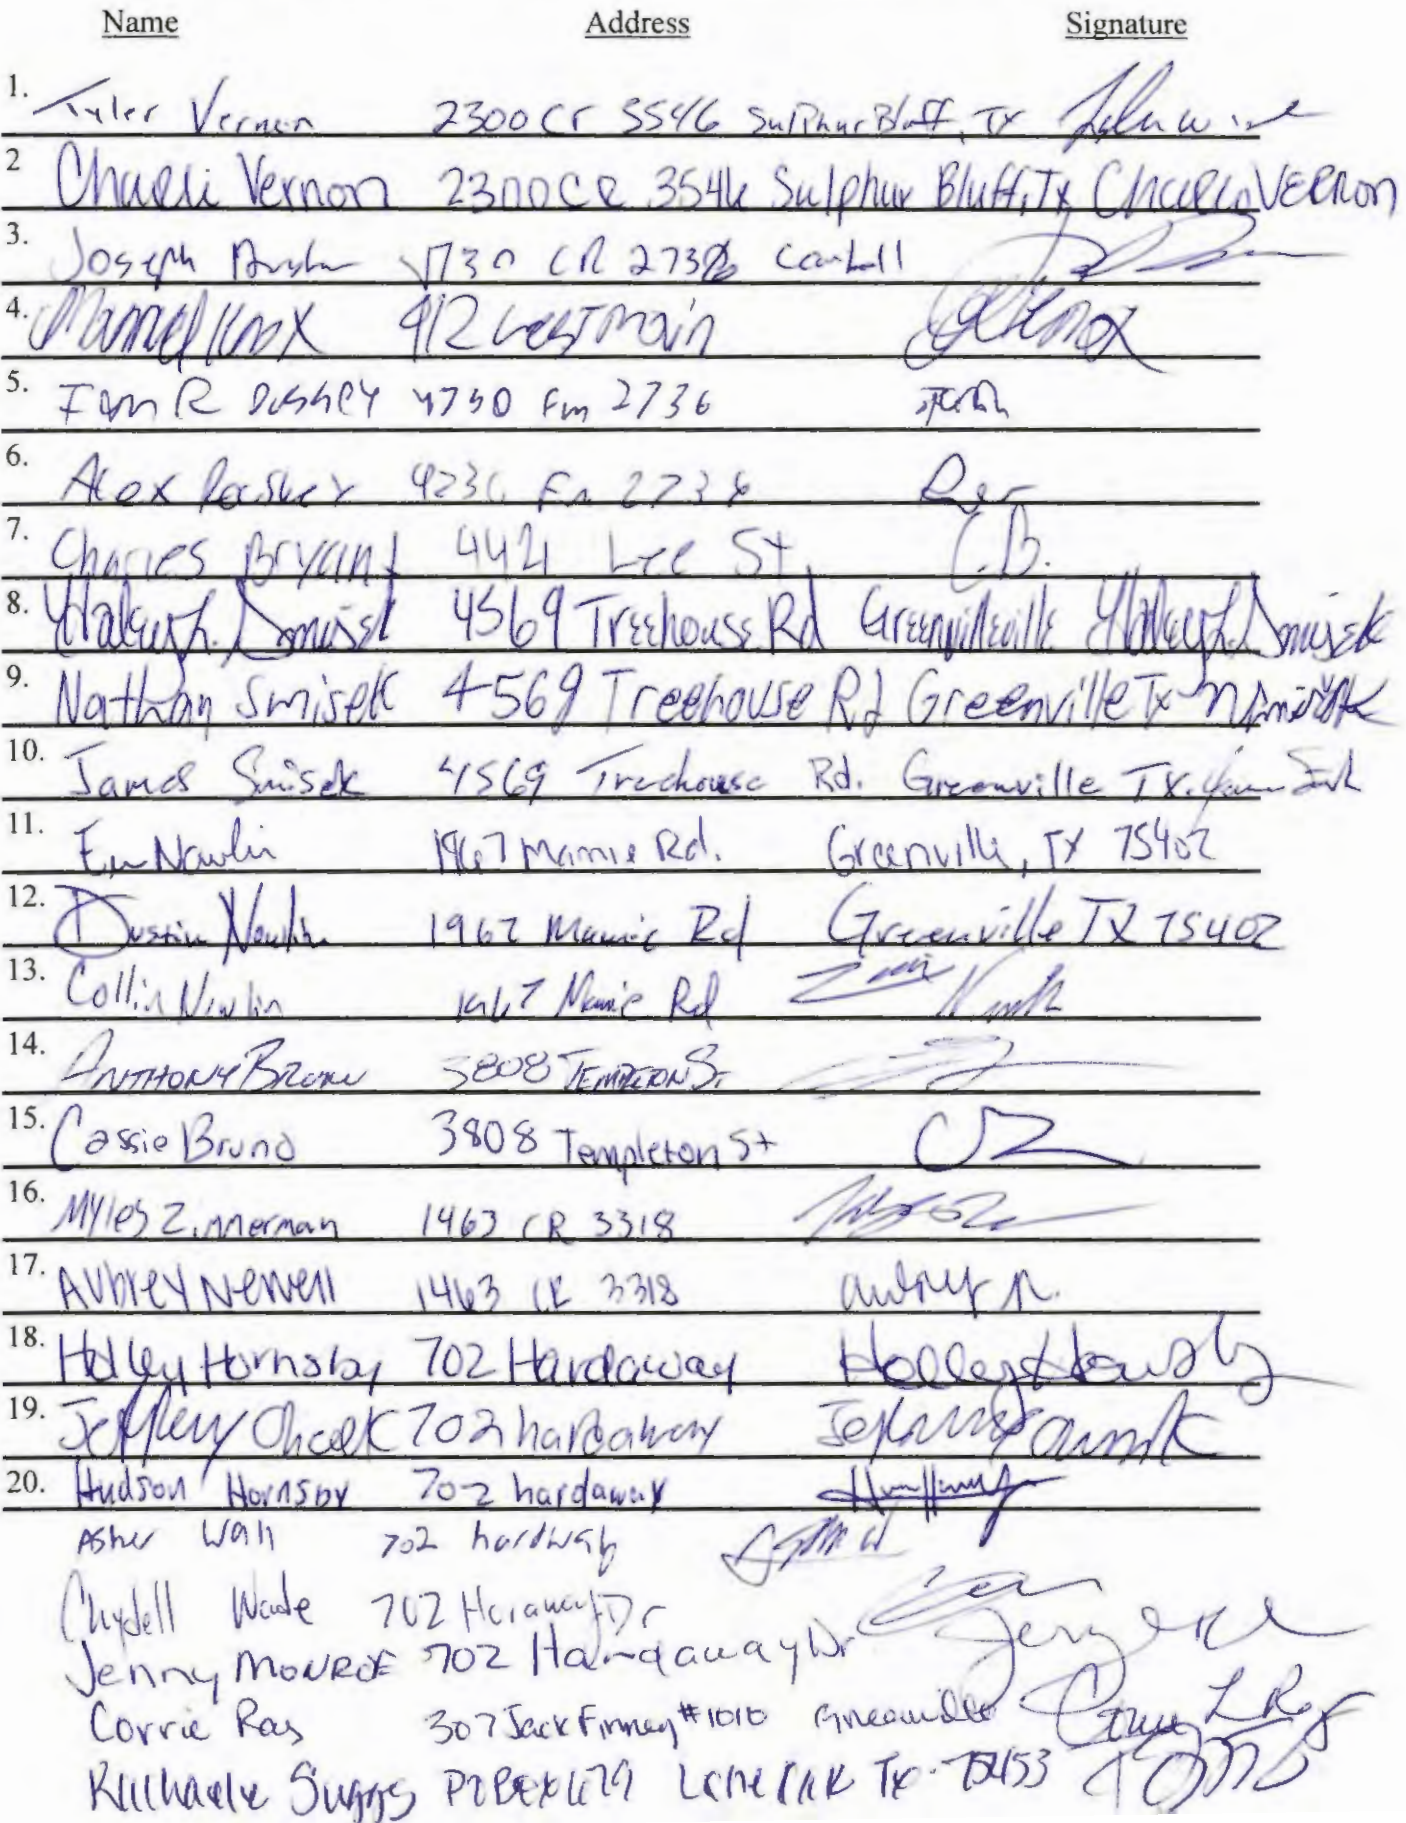 Name Address Signature
1. Tyler Vernon 2300 Cr 3546 Sulphur Bluff, Tx
2 Charli Vernon 2300 CR 3546 Sulphur Bluff, Tx Charli VERNON
3. Joseph 2736 Campbell
4. Knox 912 West Main Knox
5. R 4730 Fm 2736
6. Alex Fm 2736
7. Charles Bryant 4421 Lee St C.B.
8. Haley L. Smisek 4569 Treehouse Rd Greenvilleville Haley L. Smisek
9. Nathan Smisek 4569 Treehouse Rd Greenville Tx N Smisek
10. James Smisek 4569 Treehouse Rd. Greenville TX.
11. Nowlin 1967 Mamie Rd. Greenville, TX 75402
12. Dustin Nowlin 1967 Mamie Rd Greenville TX 75402
13. Collin Nowlin 1967 Mamie Rd
14. ANTHONY BRUNO 3808 TEMPLETON ST
15. Cassie Bruno 3808 Templeton St
16. Myles Zimmerman 1463 CR 3318
17. Aubrey Newell 1463 CR 3318 aubrey n.
18. Holley Hornsby 702 Hardaway Holley Hornsby
19. Jeffery Cheek 702 hardaway
20. Hudson Hornsby 702 hardaway
Asher Wall 702 hardway
Wade 702 Dr
Jenny MONROE 702 Hardaway Dr
Corrie Ray 307 Jack Finney #1010 Greenville
Suggs PO BOX 679 Lone Oak Tx. 75453